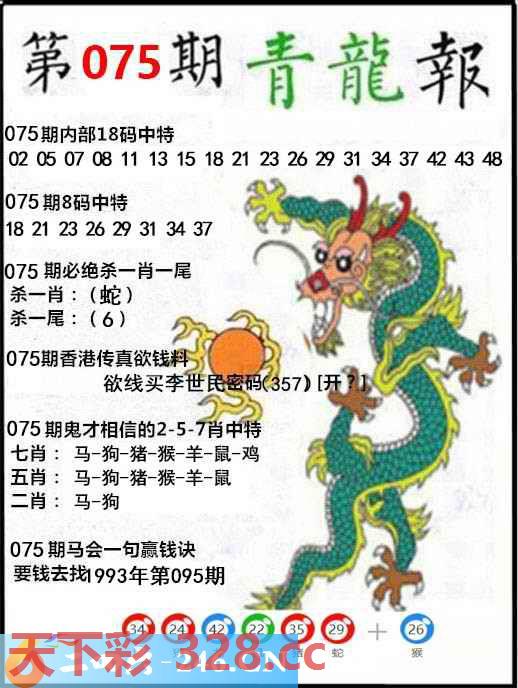 第075期青龍報
075期内部18码中特
02 05 07 08 11 13 15 18 21 23 26 29 31 34 37 42 43 48
075期8码中特
18 21 23 26 29 31 34 37
075期必绝杀一肖一尾
杀一肖：（蛇）
杀一尾：（6）
075期香港传真欲钱料
欲线买李世民密码(357)[开?]
075期鬼才相信的2-5-7肖中特
七肖：马-狗-猪-猴-羊-鼠-鸡
五肖：马-狗-猪-羊-鼠
二肖：马-狗
075期马会一句赢钱诀
要钱去找1993年第095期
34 24 42 22 35 29 + 26
猪 蛇 猴
天下彩 328.cc